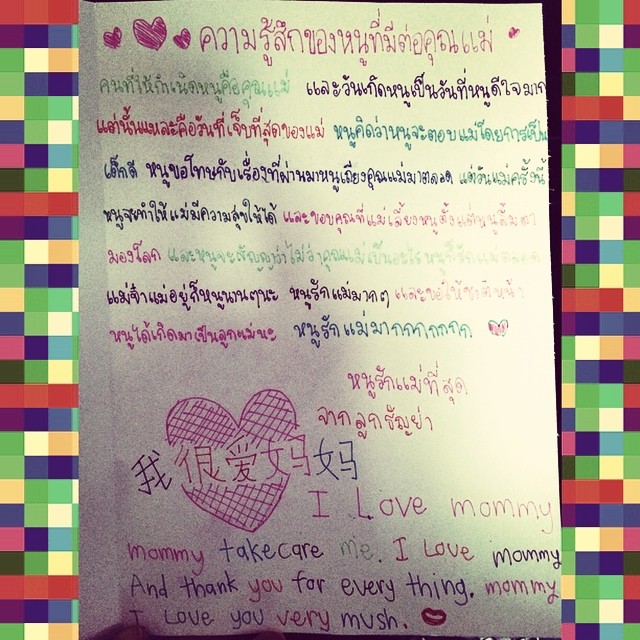 ความรู้สึกของหนูที่มีต่อคุณแม่
คนที่ให้กำเนิดหนูคือคุณแม่ และวันเกิดหนูเป็นวันที่หนูดีใจมาก
แต่นั้นแหละคือวันที่เจ็บที่สุดของแม่ หนูคิดว่าหนูจะตอบแม่โดยการเป็น
เด็กดี หนูขอโทษกับเรื่องที่ผ่านมาหนูเถียงคุณแม่มาตลอด แต่วันแม่ครั้งนี้
หนูจะทำให้แม่มีความสุขให้ได้ และขอบคุณที่แม่เลี้ยงหนูตั้งแต่หนูลืมตา
มองโลก และหนูจะสัญญาว่าไม่ว่าคุณแม่เป็นอะไร หนูก็รักแม่ตลอด
แม่จ๋าแม่อยู่กับหนูนานๆนะ หนูรักแม่มากๆ และขอให้ชาติหน้า
หนูได้เกิดมาเป็นลูกแม่นะ หนูรักแม่มากกกกกกก
หนูรักแม่ที่สุด
จากลูกธัญย่า
我很爱妈妈
I Love mommy
mommy takecare me. I Love mommy
And thank you for every thing. mommy
I Love you very mush.